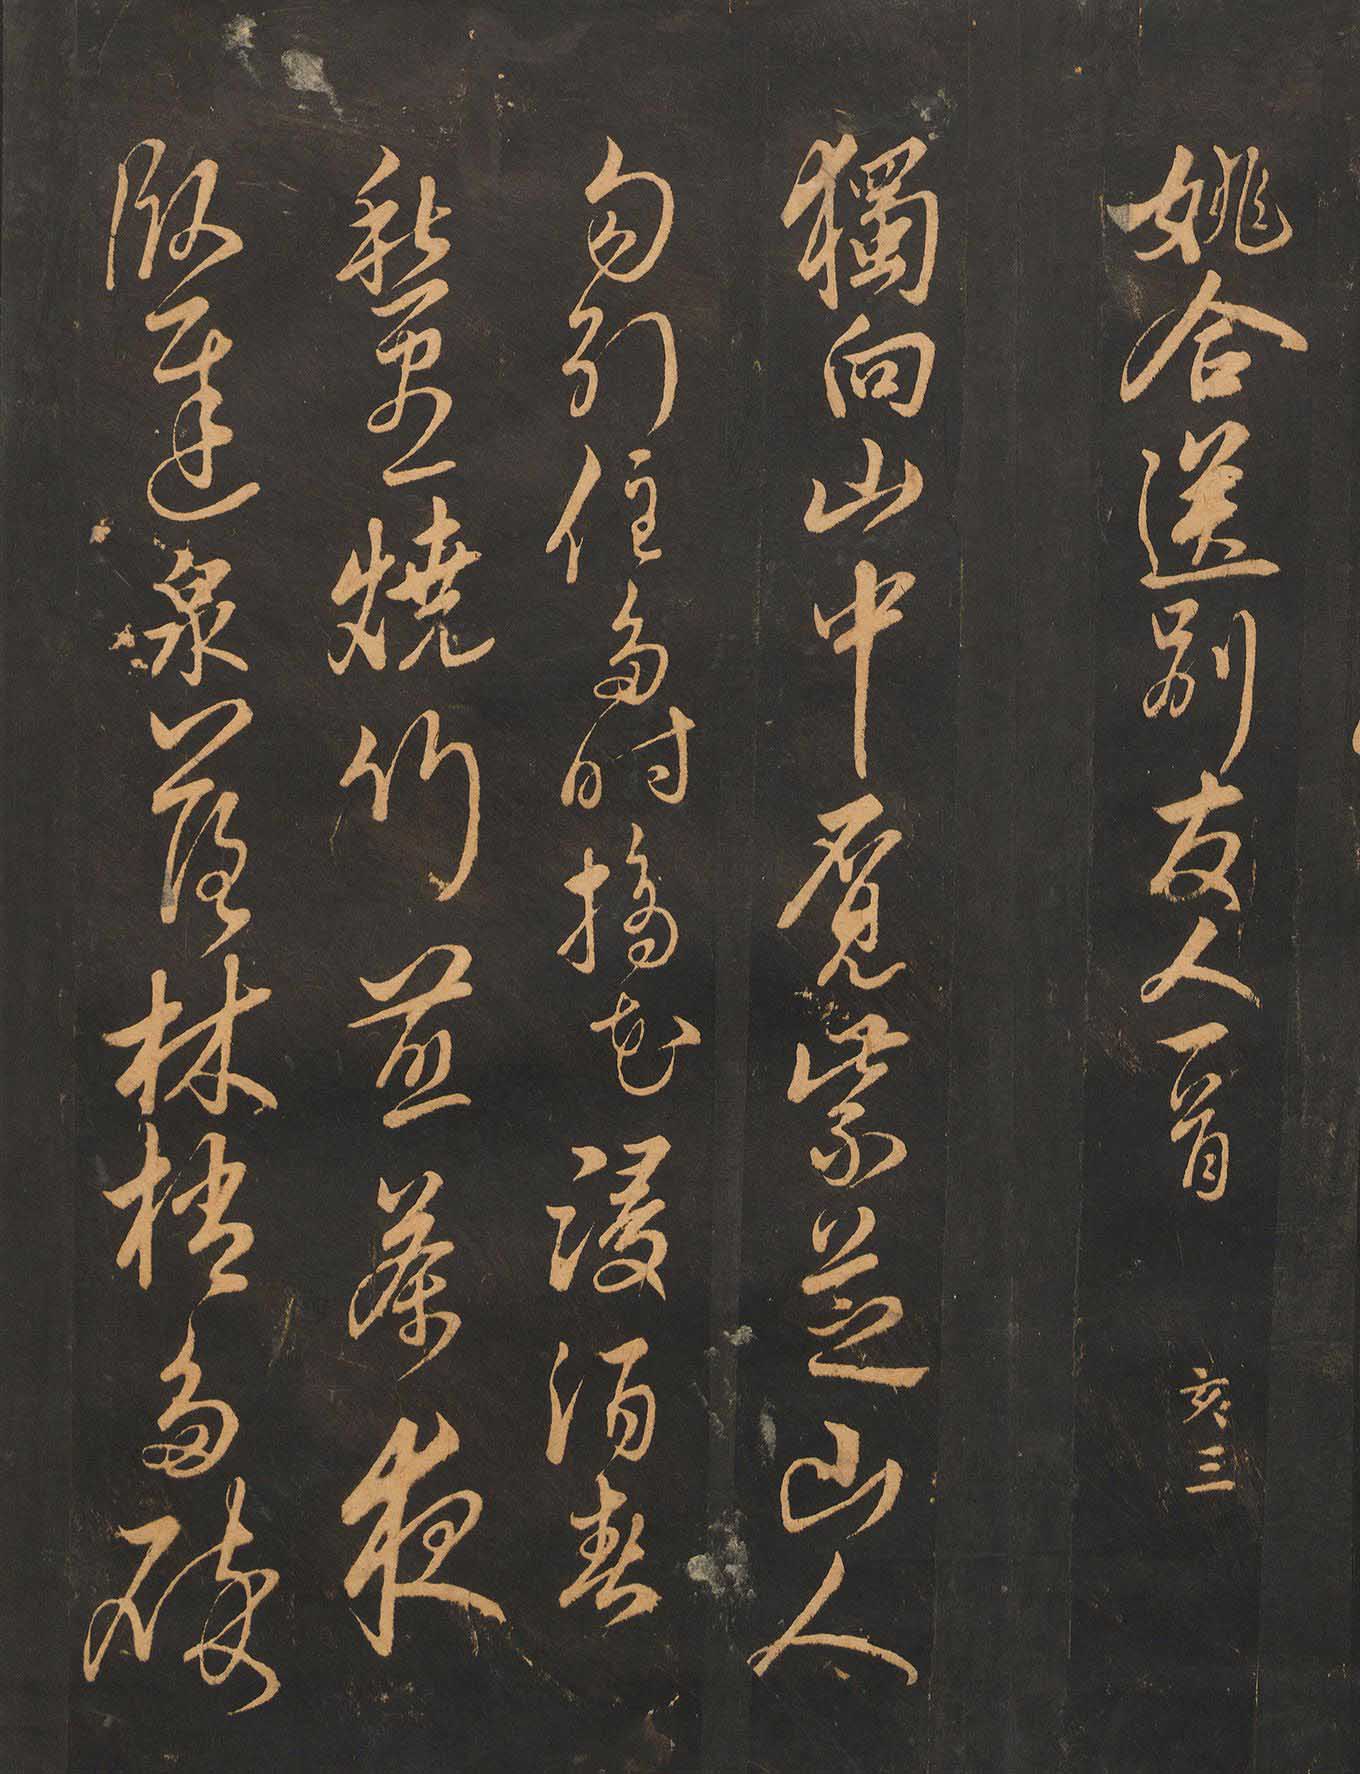 姚合送别友人一首 亥三
獨向山中覓紫芝山人
勾引住多時摘花浸酒春
愁盡燒竹煎茶夜
臥遲泉落林梢多碎